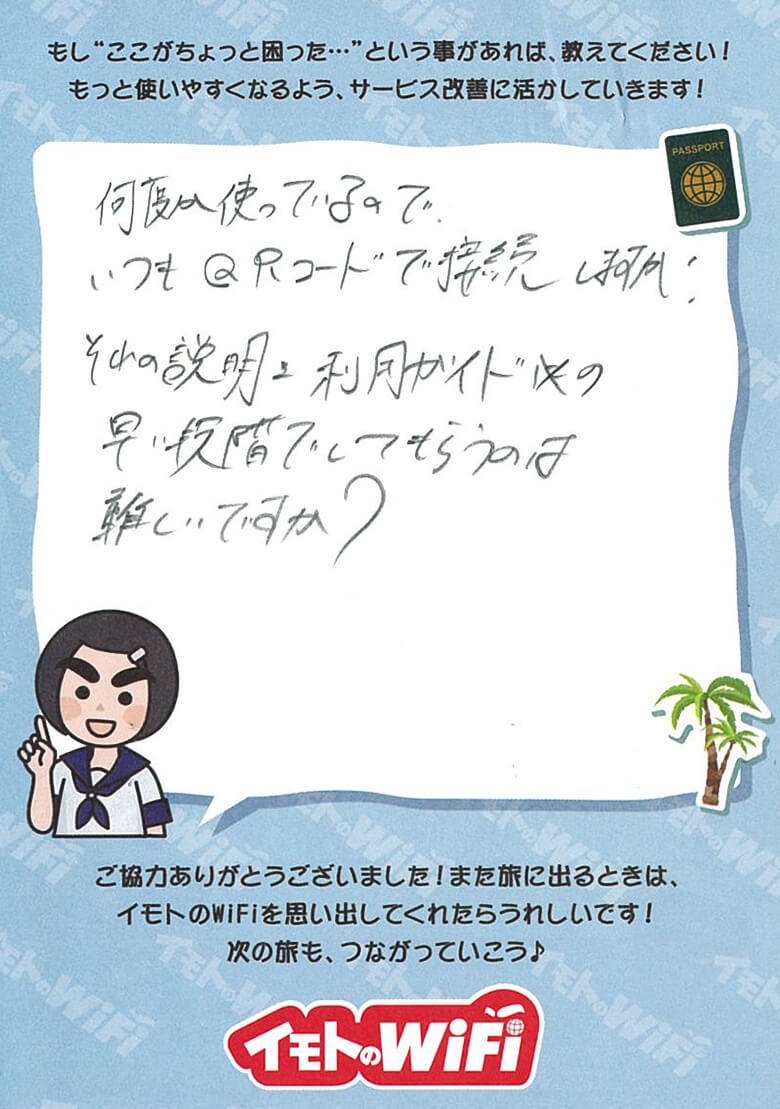 もし“ここがちょっと困った…”という事があれば、教えてください！
もっと使いやすくなるよう、サービス改善に活かしていきます！
PASSPORT
何度か使っているので、
いつもQRコードで接続しますが！
それの説明を利用ガイドの
早い段階でしてもらうのは
難しいですか？
ご協力ありがとうございました！また旅に出るときは、
イモトのWiFiを思い出してくれたらうれしいです！
次の旅も、つながっていこう♪
イモトのWiFi